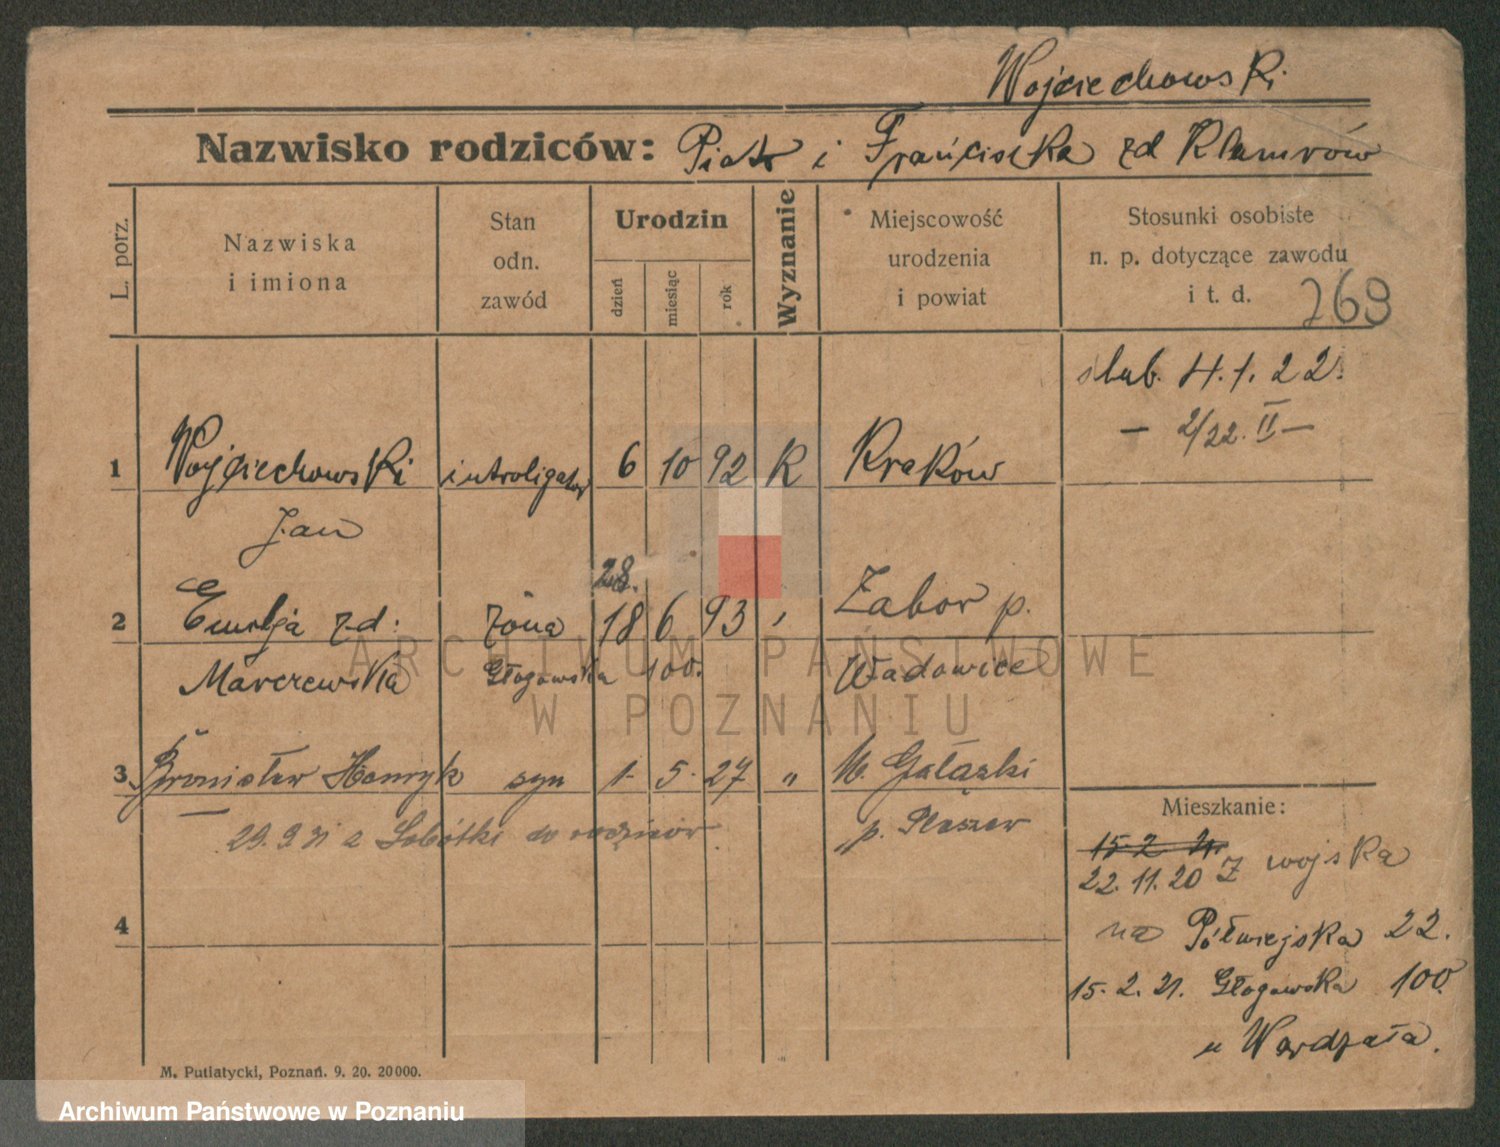 Wojciechowski
Nazwisko rodziców: Piotr i Franciszka zd Klamrów
L. porz.
Nazwiska
i imiona
Stan
odn.
zawód
Urodzin
dzień
miesiąc
rok
Wyznanie
Miejscowość
urodzenia
i powiat
Stosunki osobiste
n. p. dotyczące zawodu
i t. d.
269
ślub. 4.1.22.
— 2/22. II —
1 Wojciechowski introligator 6 10 92 K Kraków
Jan
28.
2 Emilja zd: żona 18 6 93 Zabor p.
Marczewska Głogowska 100. Wadowice
3 Bronisław Henryk syn 1. 5. 27 „ M. Gałązki
29.9 31 z Sobótki do rodziców p. Pleszew
4
Mieszkanie:
15.2 21.
22.11.20 Z wojska
na Półwiejska 22.
15.2.21. Głogowska 100.
u Wardzała.
M. Putiatycki, Poznań. 9. 20. 20000.
ARCHIWUM PAŃSTWOWE
W POZNANIU
Archiwum Państwowe w Poznaniu